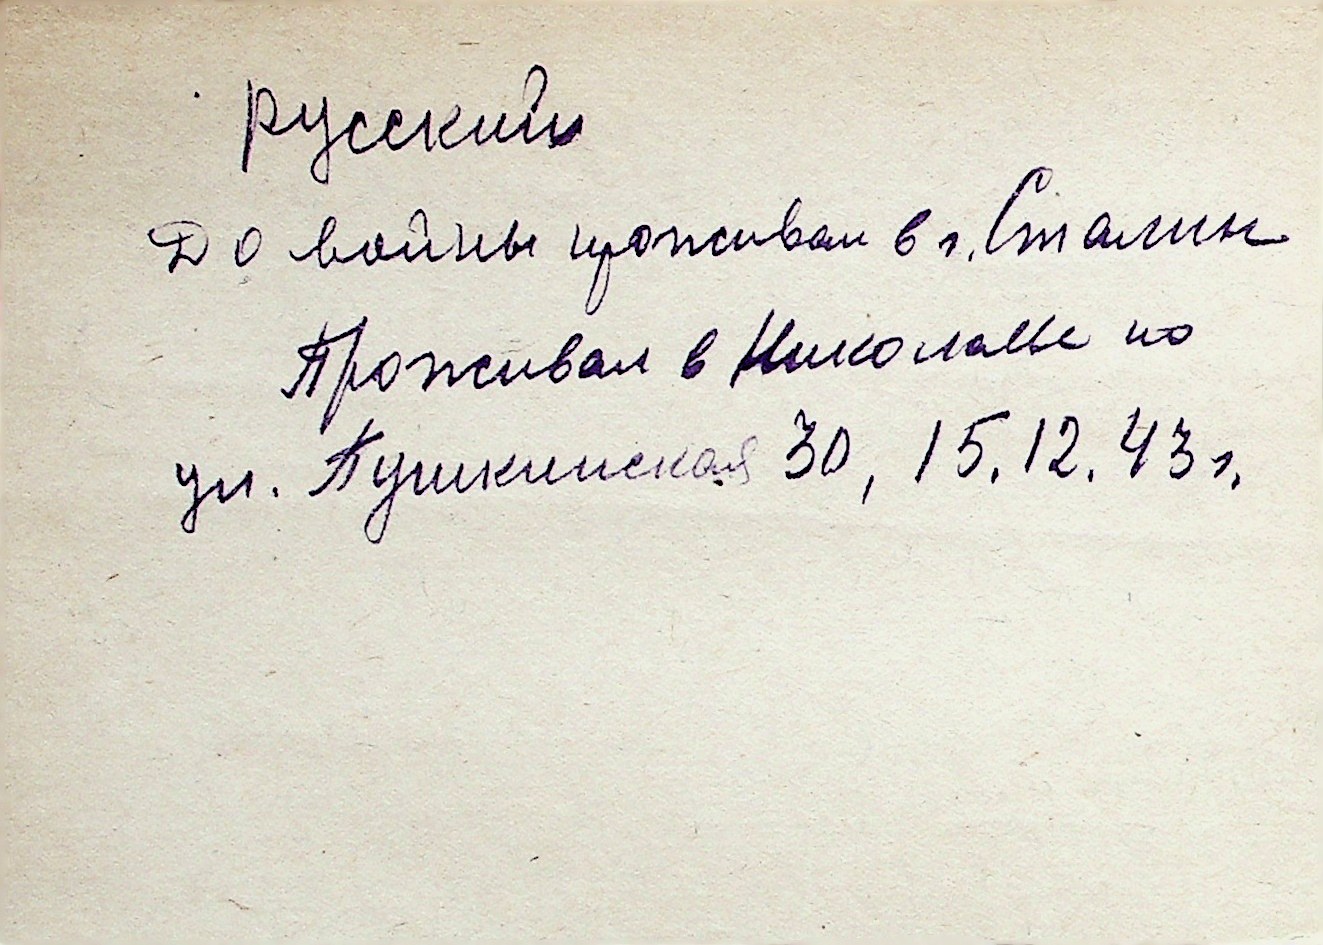 русский
До войны проживал в г. Сталин
Проживал в Николаеве по
ул. Пушкинская 30, 15.12.43 г.